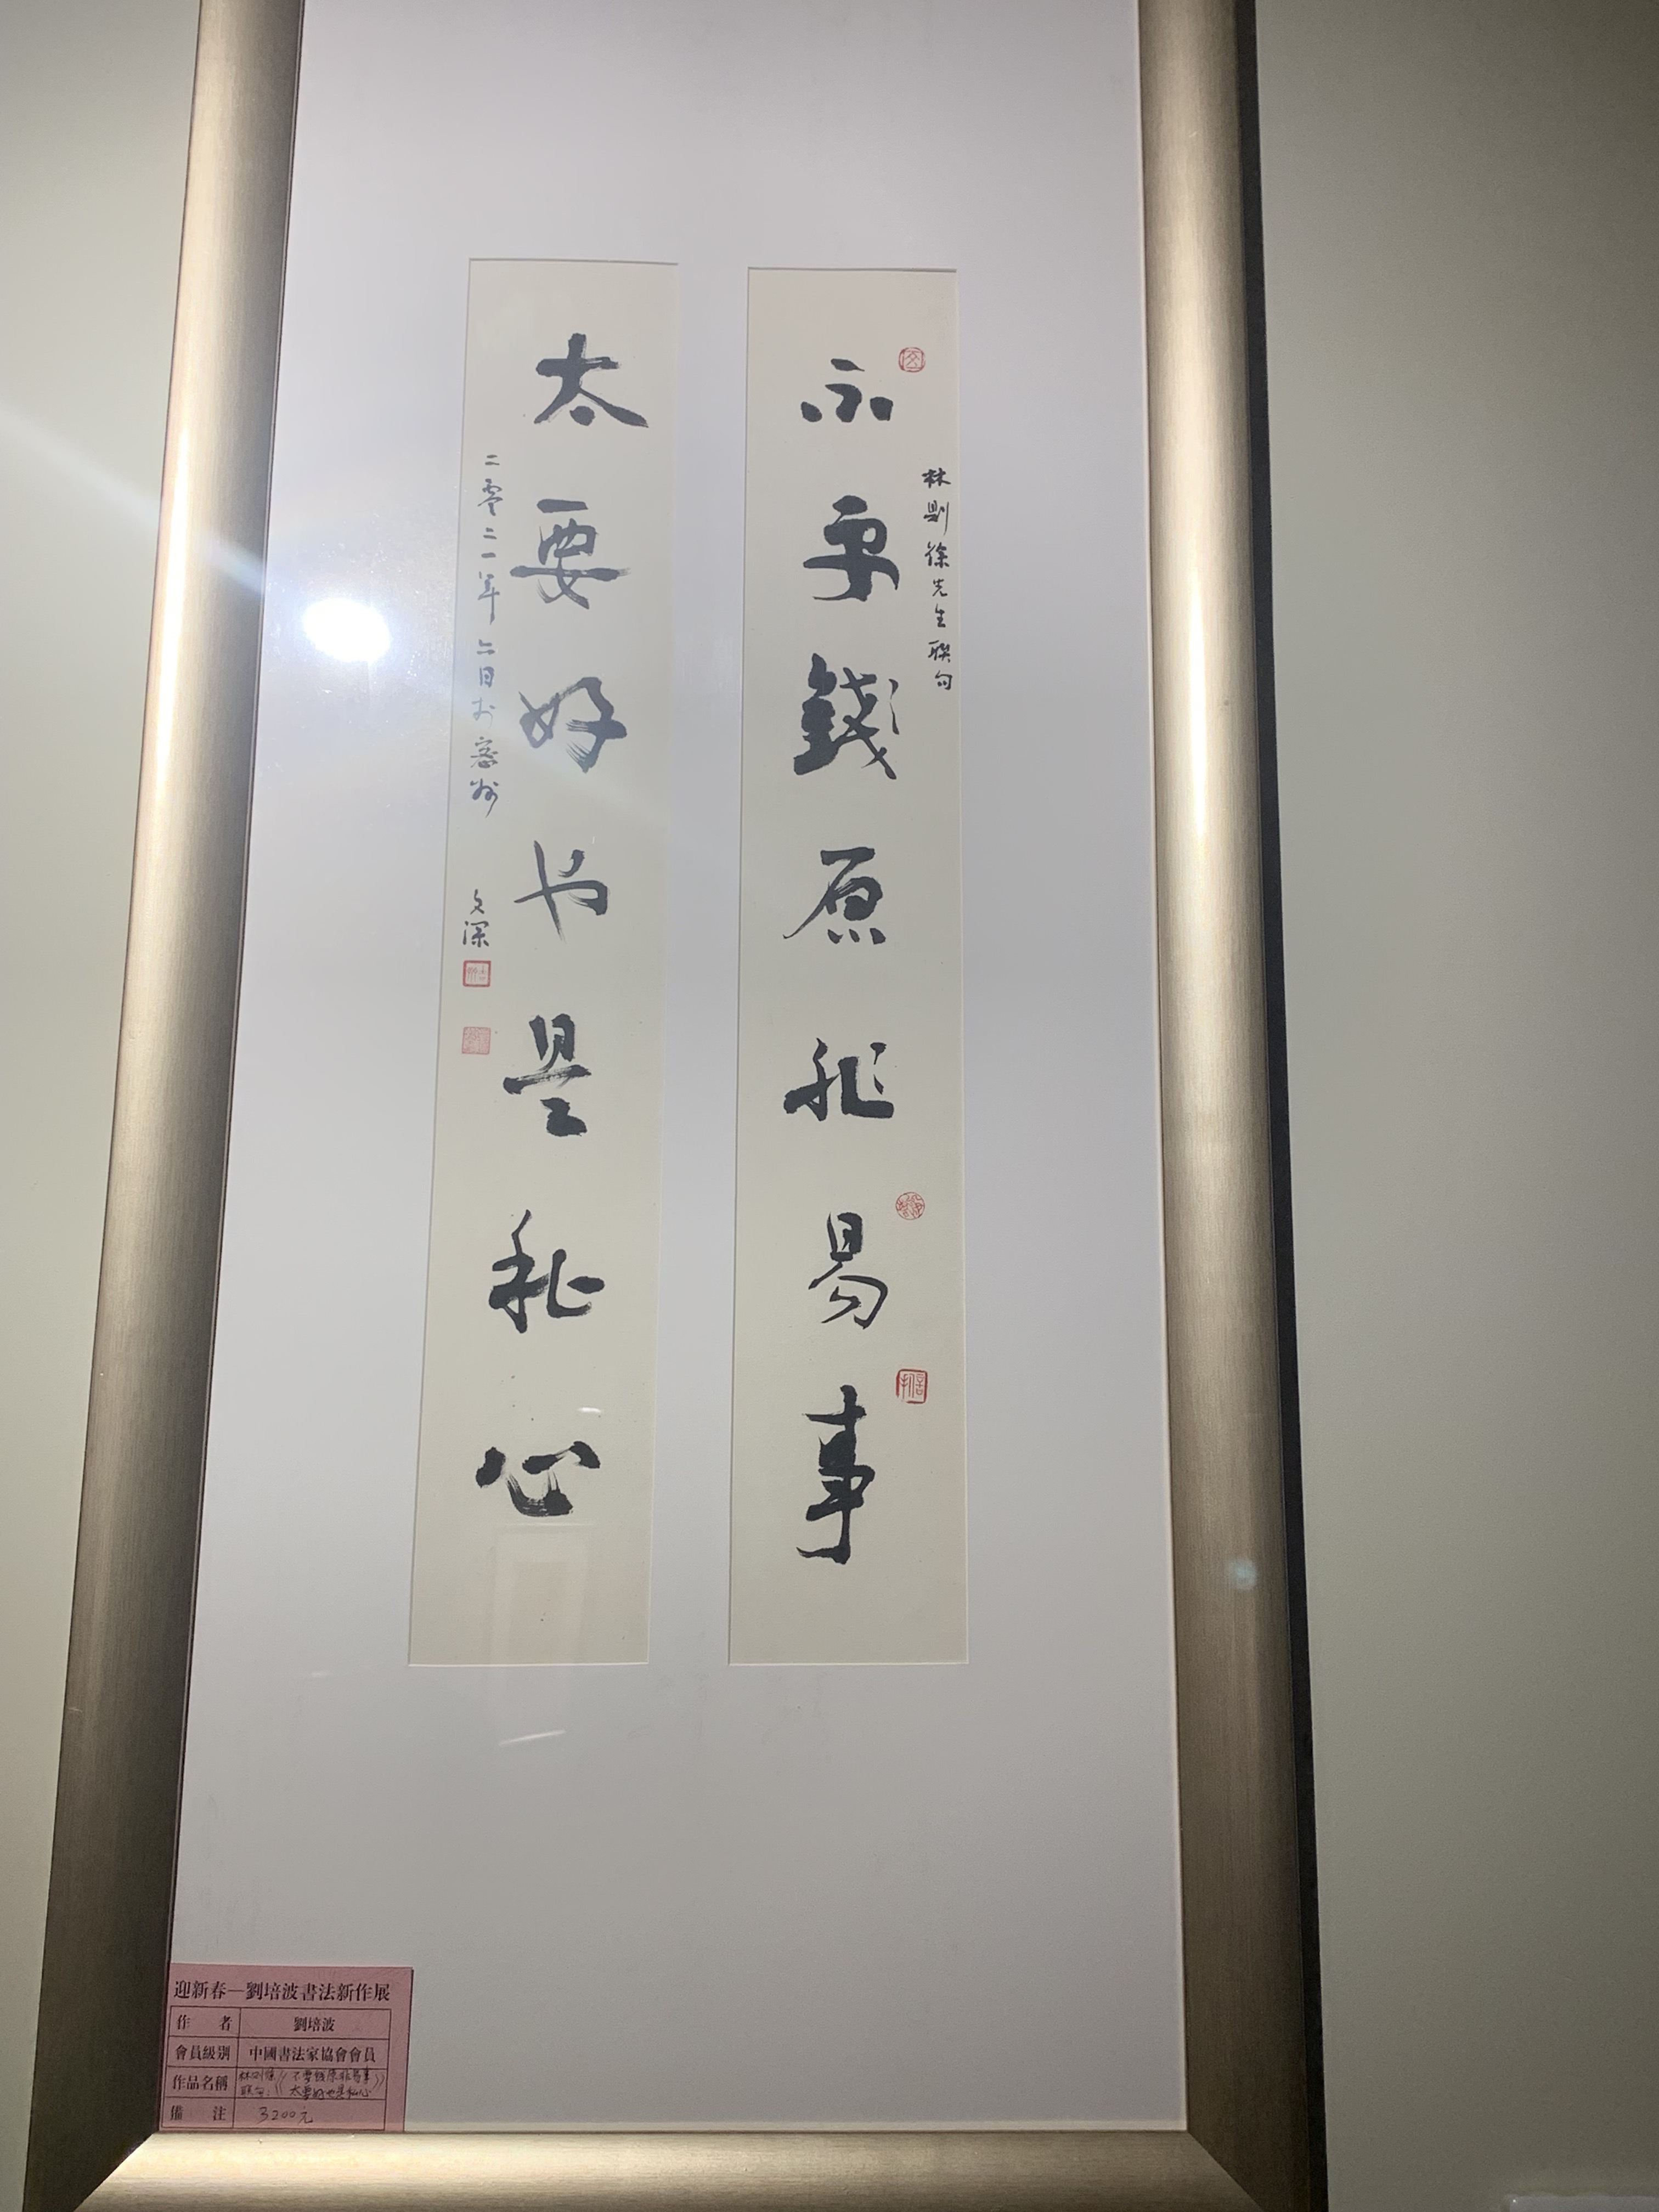 不要錢原非易事
林則徐先生聯句
太要好也是私心
二零二一年六日於密州 文深
迎新春—劉培波書法新作展
作者 劉培波
會員級別 中國書法家協會會員
作品名稱 林则徐联句：《不要钱原非易事 太要好也是私心》
備注 3200元